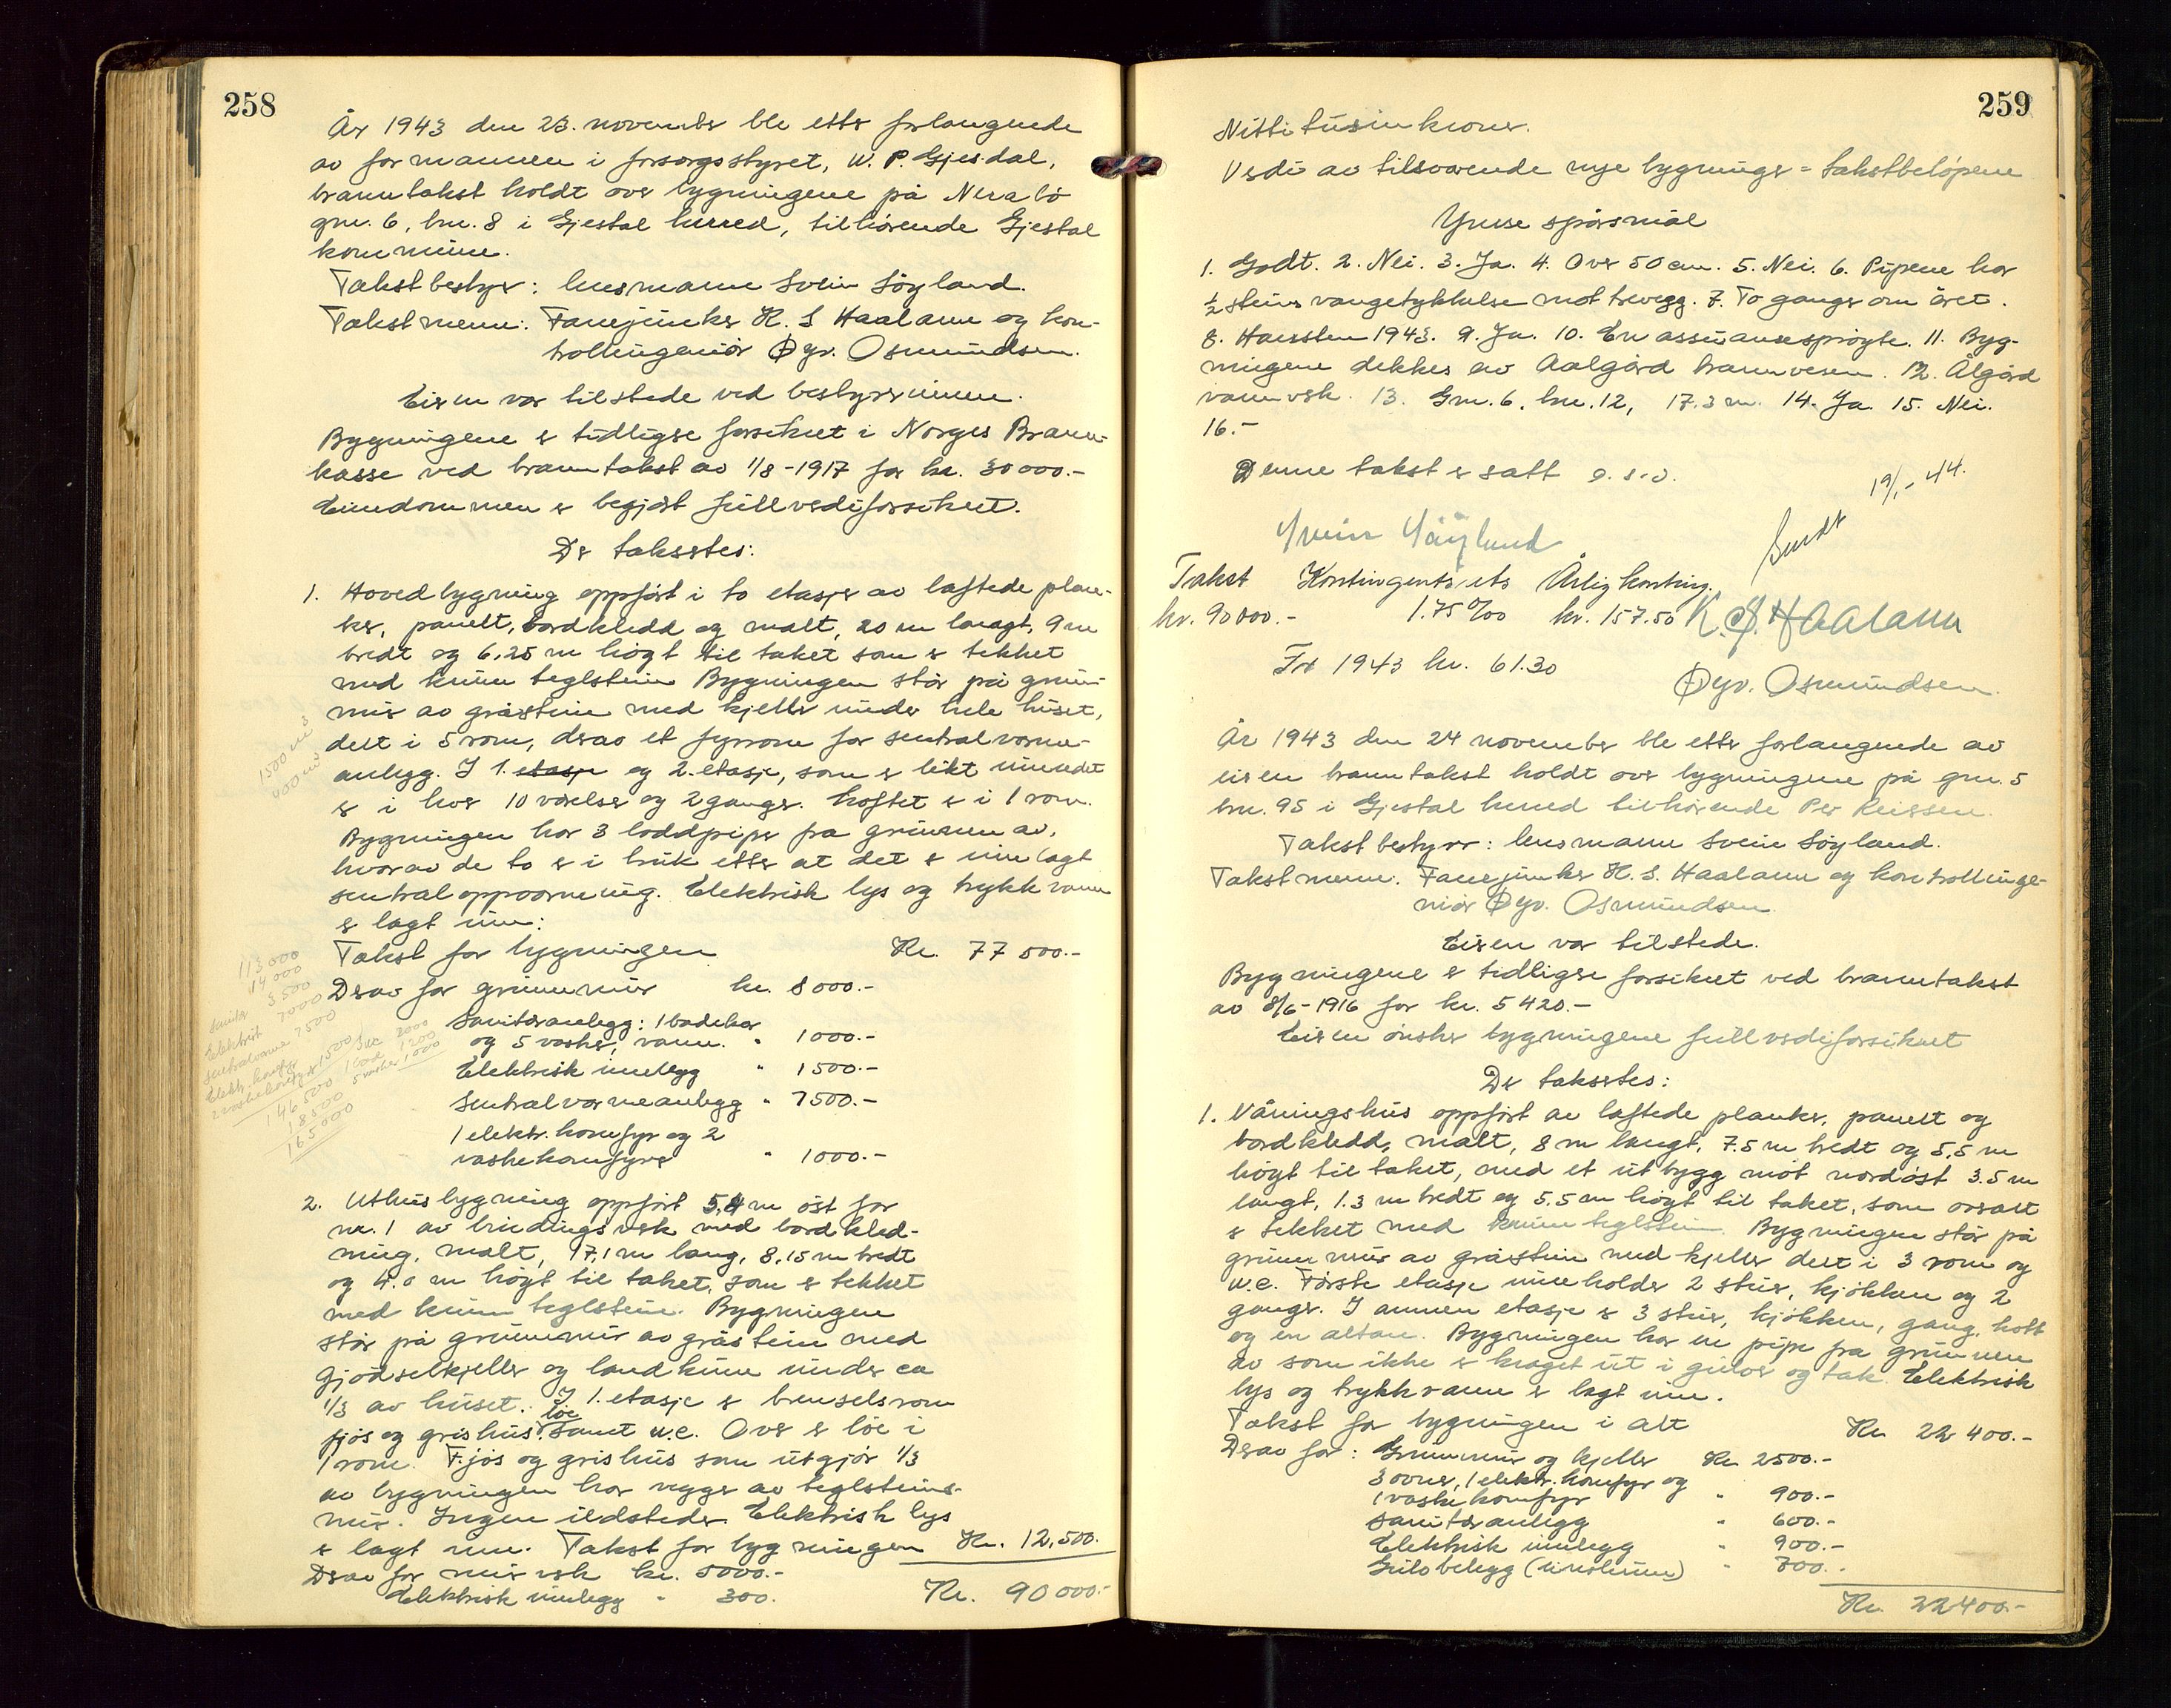 258
År 1943 den 23. november ble etter forlangende
av formannen i forsorgsstyret, W. P. Gjesdal,
branntakst holdt over bygningene på Nerabø
gnr. 6, bnr. 8 i Gjestal herred, tilhørende Gjestal
kommune.
Takstbestyr: lensmann Svein Söyland.
Takstmenn: Fanejunker K. S Haalann og kon-
trollingeniør Øyv. Osmundsen.
Eieren var tilstede ved bestyrerinnen.
Bygningene er tidligere forsikret i Norges Brann-
kasse ved branntakst av 1/8-1917 for kr. 30000.-
Eiendommen er begjært fullverdiforsikret.
Der takseres:
1. Hovedbygning oppført i to etasjer av laftede plan-
ker, panelt, bordkledd og malt, 20 m langt, 9 m
bredt og 6,25 m høgt til taket som er tekket
med krum teglstein Bygningen står på grun-
mur av gråstein med kjeller under hele huset,
delt i 5 rom, derav et fyrrom for sentralvarme-
anlegg. I 1. etasje og 2. etasje, som er likt innredet
er i hver 10 værelser og 2 ganger. Loftet er i 1 rom.
Bygningen har 3 loddpiper fra grunnen av,
hvorav de to er i bruk etter at det er innlagt
sentraloppvarming. Elektrisk lys og trykkvann
er lagt inn:
Takst for bygningen Kr. 77 500.-
Derav for grunnmur kr. 8000.-
Sanitæranlegg: 1 badekar
og 5 vasker, vann. " 1000.-
Elektrisk innlegg " 1500.-
Sentralvarmeanlegg " 7500.-
1 elektr. komfyr og 2
vaskekomfyrer " 1000.-
1500 m3
400 m3
113000
14000
3500
Sanitær 7000
Elektrisk 7500
Sentralvarme
Elektr. komfyr
2 vaskekomfyr 1500
146500
18500
165000
2. Uthusbygning oppført 5,4 m øst for
nr. 1 av bindingsverk med bordkled-
ning, malt, 17,1 m lang, 8,15 m bredt
og 4.0 m høgt til taket, som er tekket
med krum teglstein. Bygningen
står på grunnmur av gråstein med
gjødselkjeller og landkum under ca
1/3 av huset. I 1. etasje er brenselsrom
løe
fjøs og grishus. samt w.c. Over er løe i
1 rom. Fjøs og grishus som utgjør 1/3
av bygningen har vegger av teglsteins-
mur. Ingen ildsteder. Elektrisk lys
er lagt inn. Takst for bygningen Kr. 12,500.-
Derav for murverk kr. 5000.-
Elektrisk innlegg " 300. Kr. 90 000.-
259
Nitti tusin kroner.
Verdi av tilsvarende nye bygninger = takstbeløpene
Ymse spørsmål
1. Godt. 2. Nei. 3. Ja. 4. Over 50 cm. 5. Nei. 6. Pipene har
½ steins vangetykkelse mot trevegg. 7. To ganger om året.
8. Hausten 1943. 9. Ja. 10. En assuransesprøyte. 11. Byg-
ningene dekkes av Aalgård brannvesen. 12. Ålgård
vannverk. 13. Gnr. 6, bnr. 12, 17.3 m. 14. Ja. 15. Nei.
16.-
Denne takst er satt o.s.v.
Sendt 19/1-44.
Svein Söyland
Takst Kontingentsats Årlig konting.
kr. 90000.- 1.75 ‰ kr. 157.50
K. S. Haalann
For 1943 kr. 61.30
Øyv. Osmundsen.
År 1943 den 24 november ble etter forlangende av
eieren branntakst holdt over bygningene på gnr. 5
bnr. 95 i Gjestal herred tilhørende Per Reissen.
Takstbestyrer: lensmann Svein Söyland.
Takstmenn: Fanejunker K. S. Haalann og kontrollinge-
niør Øyv. Osmundsen.
Eieren var tilstede.
Bygningene er tidligere forsikret ved branntakst
av 8/6-1916 for kr. 5420.-
Eieren ønsker bygningene fullverdiforsikret
Der takseres:
1. Våningshus oppført av laftede planker, panelt og
bordkledd, malt, 8 m langt, 7.5 m bredt og 5,5 m
høgt til taket, med et utbygg mot nordøst 3.5 m
langt, 1.3 m bredt og 5.5 m høgt til taket, som overalt
er tekket med krum teglstein. Bygningen står på
grunnmur av gråstein med kjeller delt i 3 rom og
w.c. Første etasje inneholder 2 stuer, kjøkken og 2
ganger. I annen etasje er 3 stuer, kjøkken, gang, kott
og en altan. Bygningen har en pipe fra grunnen
av som ikke er kraget ut i gulver og tak. Elektrisk
lys og trykkvann er lagt inn.
Takst for bygningen i alt Kr. 22 400.-
Derav for: Grunnmur og kjeller Kr. 2500.-
3 ovner, 1 elektr. komfyr og
1 vaskekomfyr " 900.-
Sanitæranlegg " 600.-
Elektrisk innlegg " 900.-
Gulvbelegg (linoleum) " 700..
Kr. 22400.-